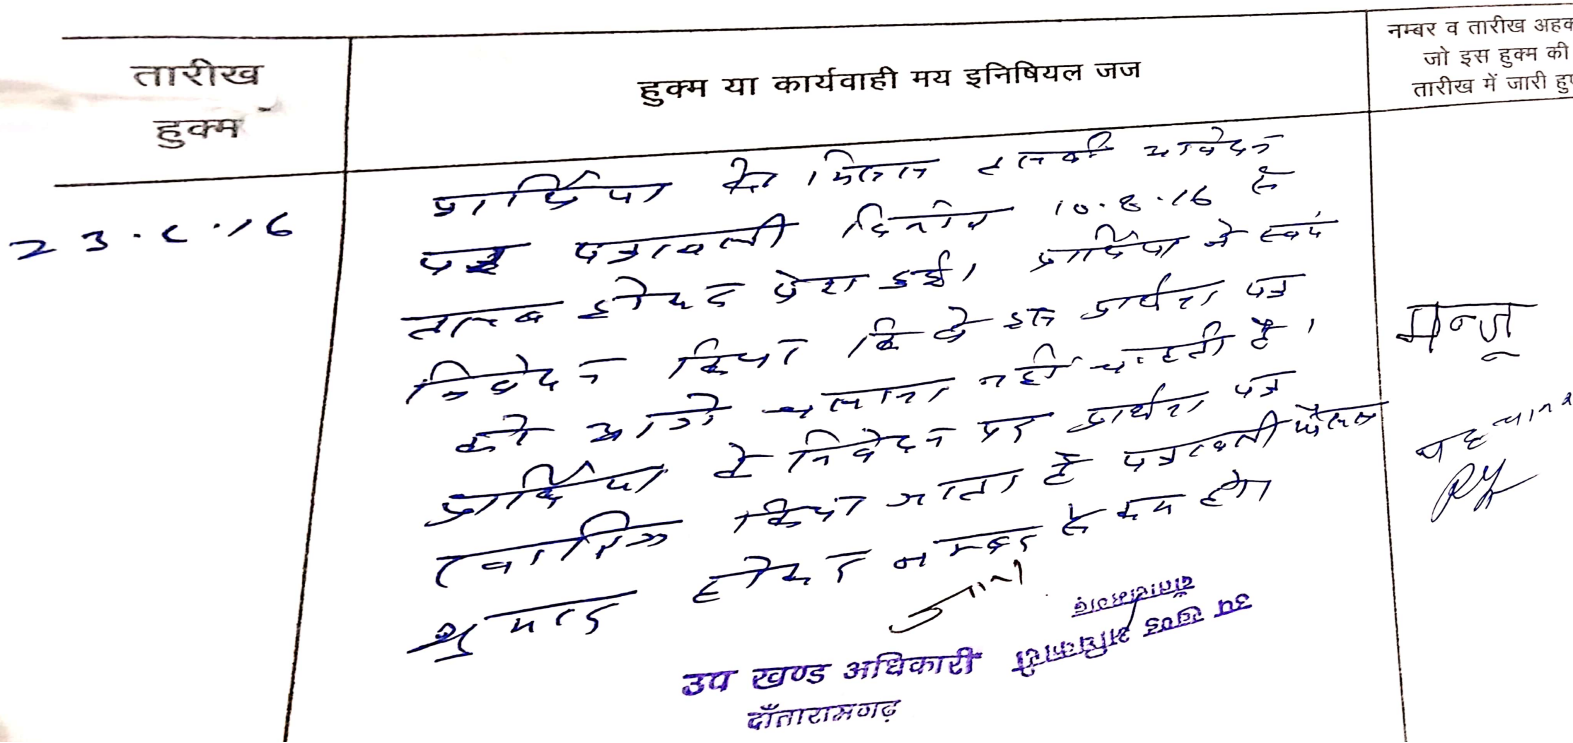 तारीख
हुक्म
हुक्म या कार्यवाही मय इनिषियल जज
नम्बर व तारीख अहक
जो इस हुक्म की
तारीख में जारी हु
23.6.16
प्रार्थिया की मिसल तलबी आवेदन
पर पत्रावली दिनांक 10.8.16 से
तलब होकर पेश हुई। प्रार्थिया ने स्वयं
निवेदन किया कि वे इस प्रार्थना पत्र
को आगे चलाना नहीं चाहती है।
प्रार्थिया के निवेदन पर प्रार्थना पत्र
खारिज किया जाता है पत्रावली फैसल
शुमार होकर नम्बर से कम हो।
मन्जू
पहचान
उप खण्ड अधिकारी
दाँतारामगढ़
उप खण्ड अधिकारी
दाँतारामगढ़